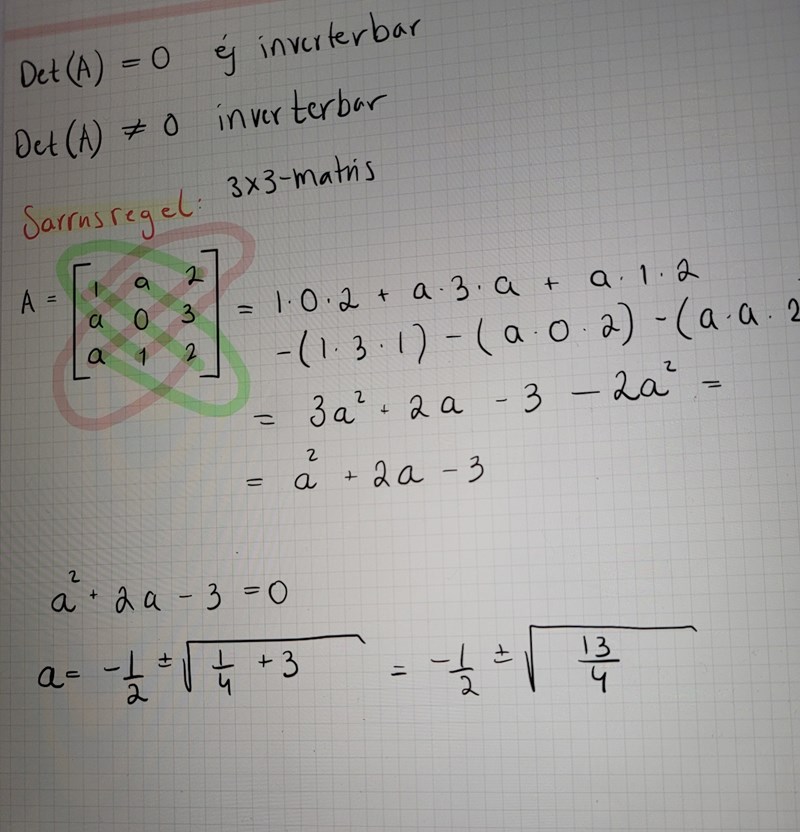 Det(A) = 0 ej inverterbar
Det(A) ≠ 0 inverterbar
Sarrusregel: 3x3-matris
A = [1 a 2; a 0 3; a 1 2] = 1·0·2 + a·3·a + a·1·2
-(1·3·1) - (a·0·2) - (a·a·2
= 3a² + 2a - 3 - 2a² =
= a² + 2a - 3
a² + 2a - 3 = 0
a = -1/2 ± √(1/4 + 3) = -1/2 ± √(13/4)